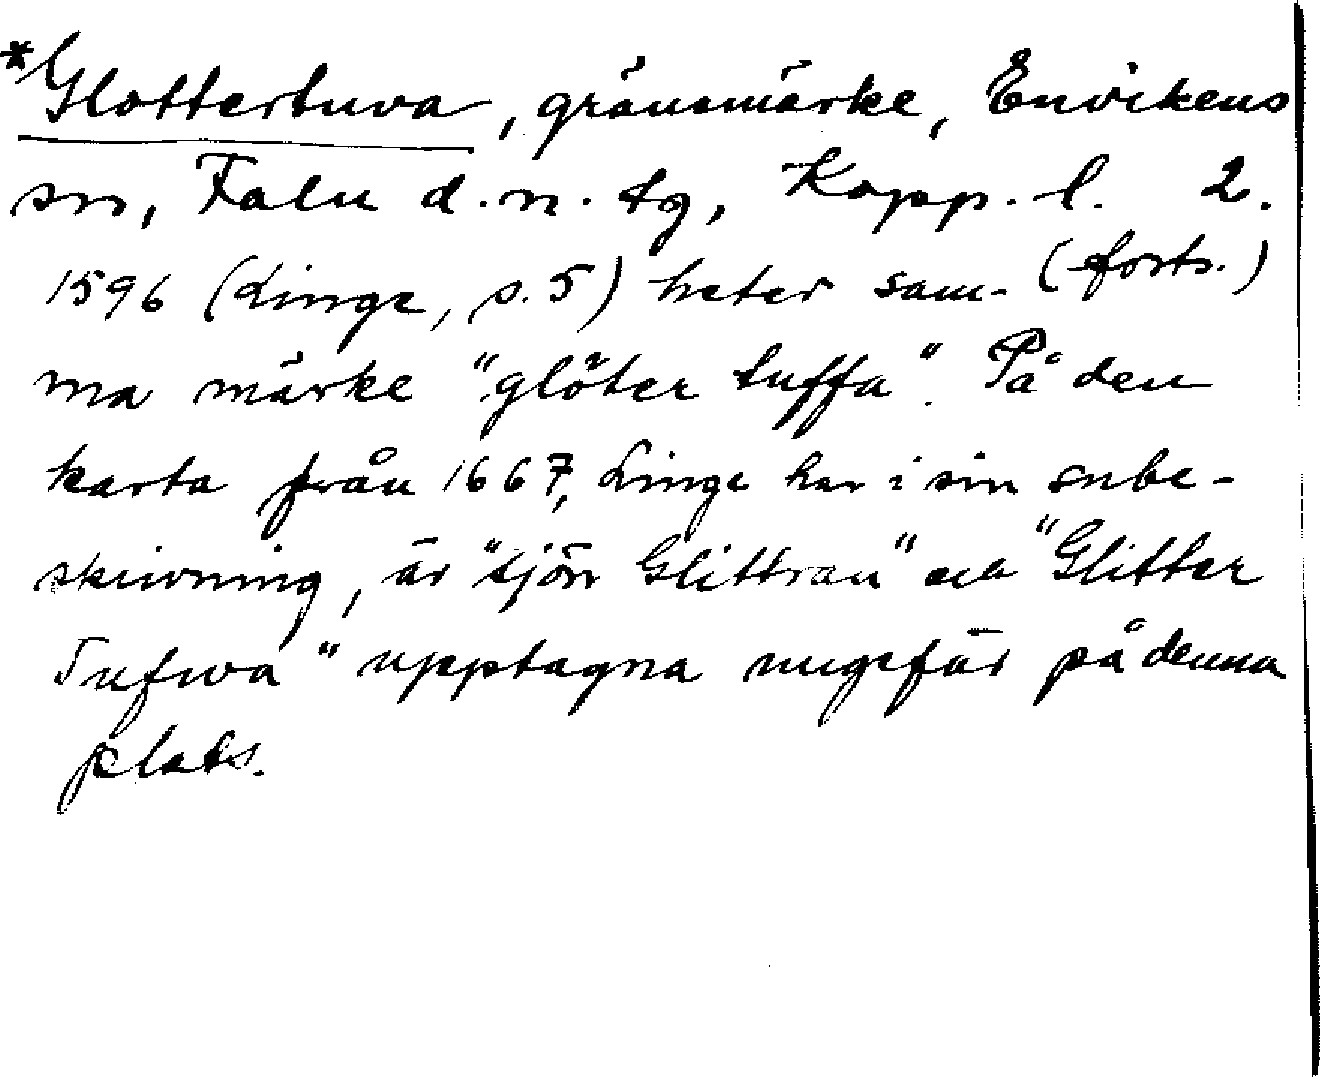 *Glottertuva, gränsmärke, Envikens
sn, Falu d.n. tg, Kopp. l. 2.
1596 (Linge, s. 5) heter sam- (forts.)
ma märke "glöter tuffa". På den
karta från 1667, Linge har i sin snbe-
skrivning, är "sjön Glittran" och "Glitter
Tufwa" upptagna ungefär på denna
plats.